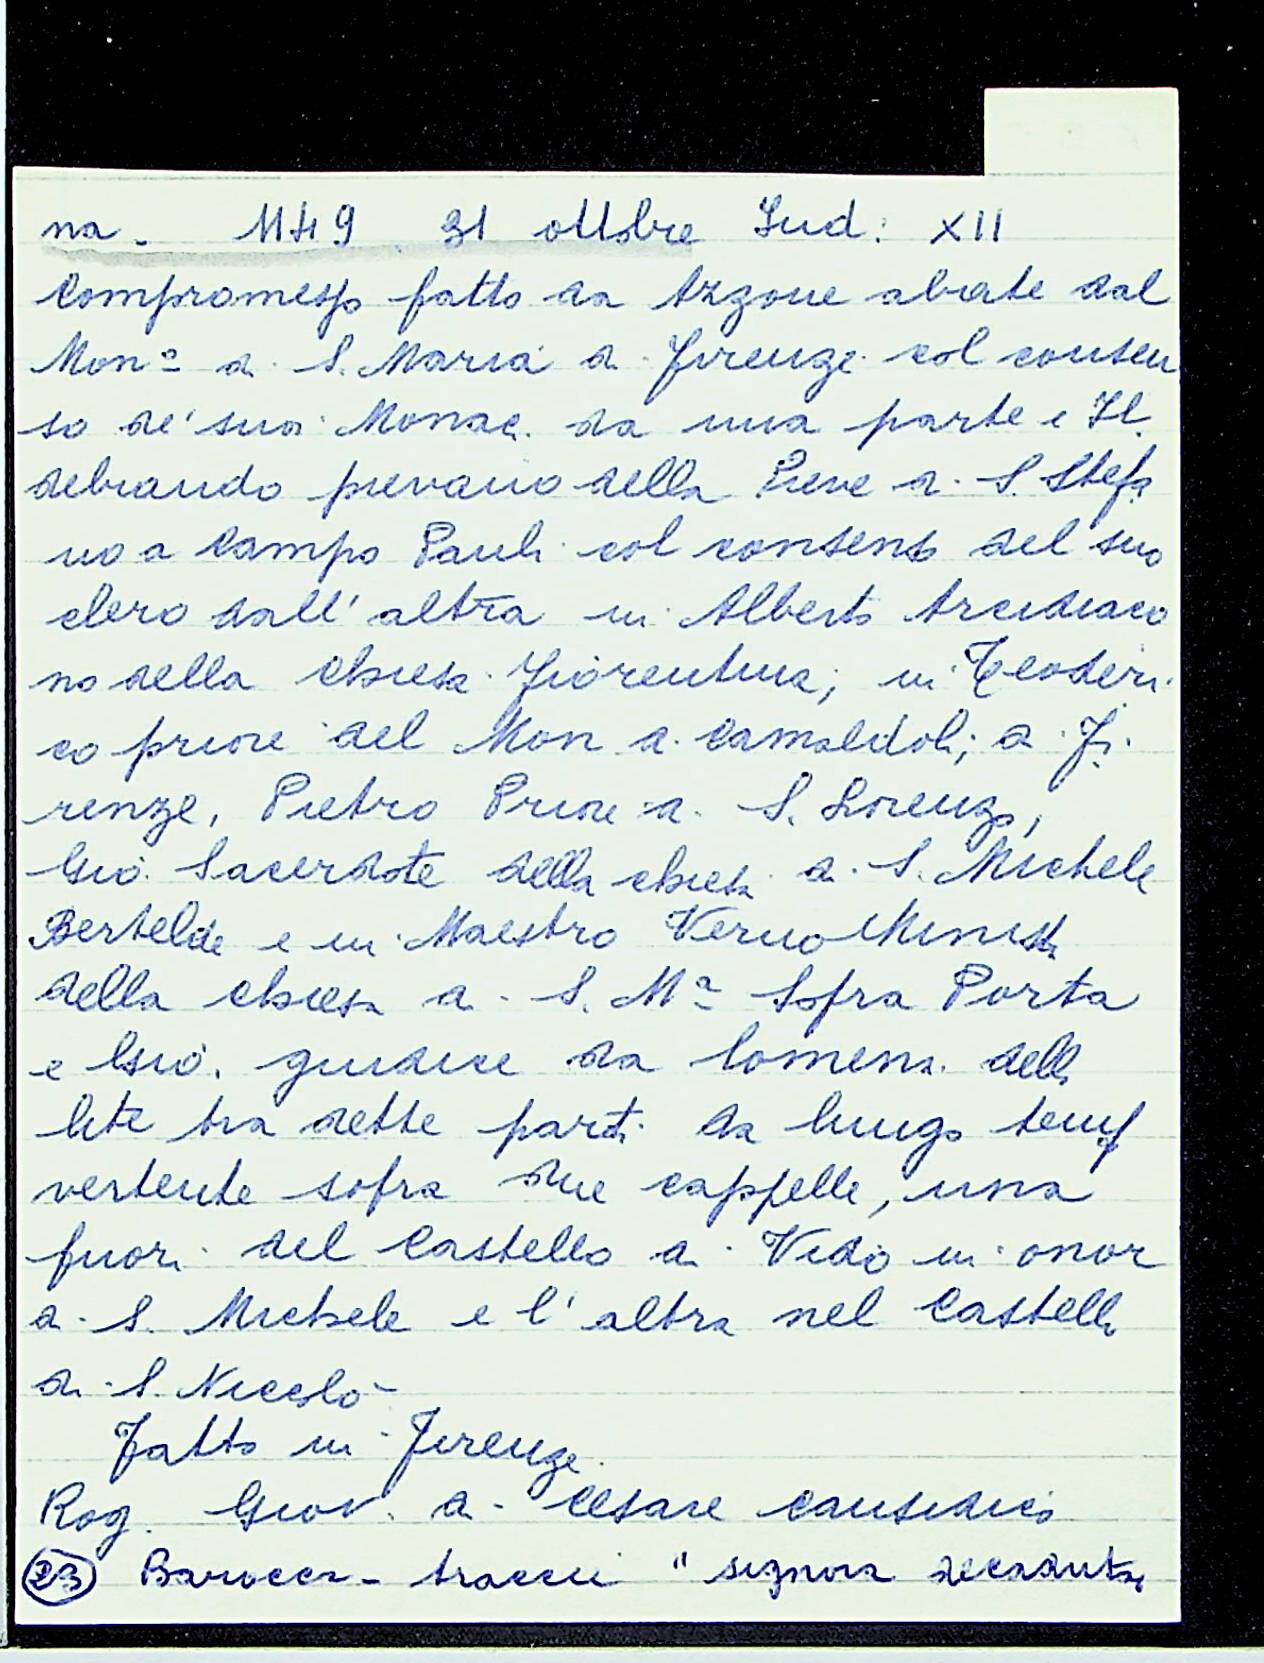 na. 1149 31 ottobre Ind: XII
Compromesso fatto da Azzone abate dal
Monº di S. Maria di Firenze col consen
so de' suoi Monac. da una parte e Il
debrando pievano della Pieve di S. Stefa
no a Campo Pauli col consenso del suo
clero dall' altra in Alberto Arcidiaco
no della chiesa Fiorentina; in Teoderi
co priore del Mon di Camaldoli; di Fi
renze, Pietro Priore di S. Lorenzo,
Gio. Sacerdote della chiesa di S. Michele
Bertelde e in Maestro Verno
della chiesa di S. Mª Sopra Porta
e Gio. giudice da Romena della
lite tra dette parti da lungo temp
vertente sopra due cappelle, una
fuori del Castello di Vedo in onor
di S. Michele e l' altra nel Castello
di S. Niccolò
Fatto in Firenze.
Rog. Giov. di Cesare Causidico
23 Barocca - "signora decaduta,